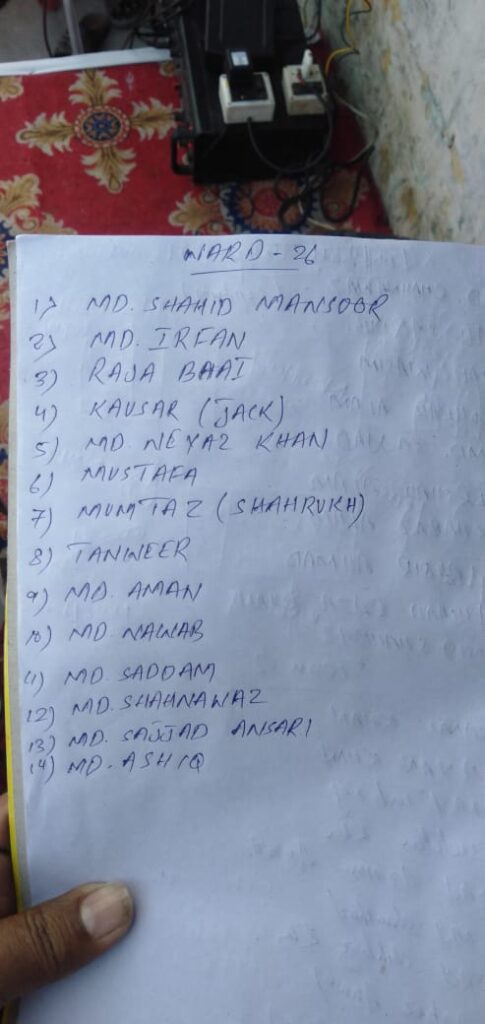 WARD - 26
1) MD. SHAHID MANSOOR
2) MD. IRFAN
3) RAJA BHAI
4) KAUSAR (JACK)
5) MD. NEYAZ KHAN
6) MUSTAFA
7) MUMTAZ (SHAHRUKH)
8) TANWEER
9) MD. AMAN
10) MD. NAWAB
11) MD. SADDAM
12) MD. SHAHNAWAZ
13) MD. SAJJAD ANSARI
14) MD. ASHIQ